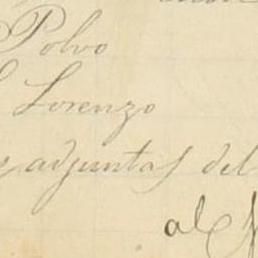 Polvo
Lorenzo
adjuntas del
al